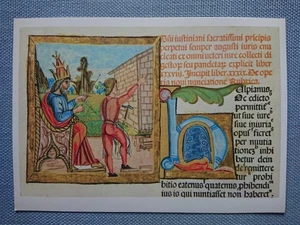 perpetuo semper augusti iuris enu
cleati ex omni veteri iure collecti di
gestorum seu pandectarum explicit liber
xxxviii. Incipit liber. xxxix. De ope
ris novi nunciatione Rubrica.
Ulpianus.
De edicto
permittit
ut sive iure
sive iniuria
opus fieret
per
nuntia
tiones inhi
betur dein
de remittere
tur prohi
bitio eatenus quatenus phibendi
ius is qui nuntiasset non haberet.